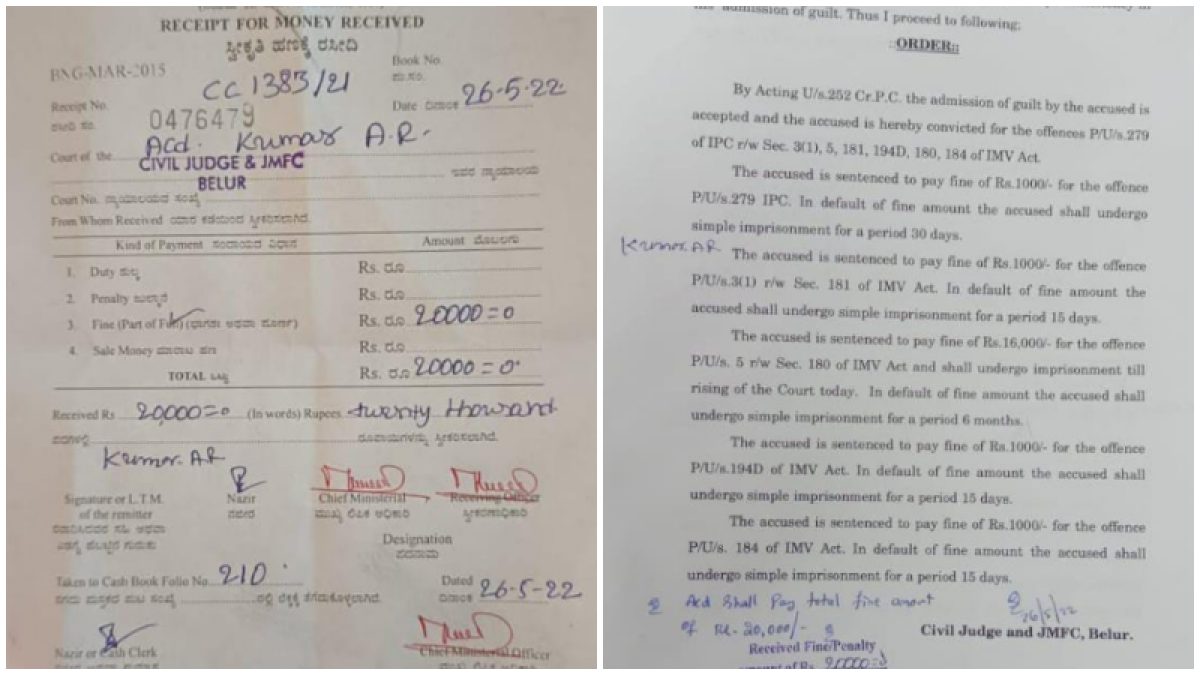 RECEIPT FOR MONEY RECEIVED
ಸ್ವೀಕೃತಿ ಹಣಕ್ಕೆ ರಸೀದಿ
BNG-MAR-2015
CC 1383/21
Book No.
Receipt No. 0476479
Date ದಿನಾಂಕ 26-5-22
Acd. Kumar A.R.
Court of the
CIVIL JUDGE & JMFC
BELUR
ಇವರ ನ್ಯಾಯಾಲಯ
Court No. ನ್ಯಾಯಾಲಯದ ಸಂಖ್ಯೆ
From Whom Received ಯಾರ ಕಡೆಯಿಂದ ಸ್ವೀಕರಿಸಲಾಗಿದೆ.
Kind of Payment ಸಂದಾಯದ ವಿಧಾನ Amount ಮೊಬಲಗು
1. Duty ಸುಂಕ Rs. ರೂ
2. Penalty ಜುಲ್ಮಾನೆ Rs. ರೂ
3. Fine (Part of Full) (ಭಾಗಶಃ ಅಥವಾ ಪೂರ್ಣ) Rs. ರೂ 20000=0
4. Sale Money ಮಾರಾಟ ಹಣ Rs. ರೂ
TOTAL ಒಟ್ಟು Rs. ರೂ 20000=0
Received Rs 20,000=0 (In words) Rupees twenty thousand
ರೂಪಾಯಿಗಳನ್ನು ಸ್ವೀಕರಿಸಲಾಗಿದೆ.
Kumar. AR
Signature or L.T.M. Nazir Chief Ministerial Receiving Officer
of the remitter ನಜೀರ ಮುಖ್ಯ ಲಿಪಿಕ ಅಧಿಕಾರಿ ಸ್ವೀಕರಣಾಧಿಕಾರಿ
Designation
ಪದನಾಮ
Taken to Cash Book Folio No. 210 Dated 26-5-22
ದಿನಾಂಕ
Nazir or Cash Clerk Chief Ministerial Officer
admission of guilt. Thus I proceed to following:
::ORDER::
By Acting U/s.252 Cr.P.C. the admission of guilt by the accused is
accepted and the accused is hereby convicted for the offences P/U/s.279
of IPC r/w Sec. 3(1), 5, 181, 194D, 180, 184 of IMV Act.
The accused is sentenced to pay fine of Rs.1000/- for the offence
P/U/s.279 IPC. In default of fine amount the accused shall undergo
simple imprisonment for a period 30 days.
Kumar. AR
The accused is sentenced to pay fine of Rs.1000/- for the offence
P/U/s.3(1) r/w Sec. 181 of IMV Act. In default of fine amount the
accused shall undergo simple imprisonment for a period 15 days.
The accused is sentenced to pay fine of Rs.16,000/- for the offence
P/U/s. 5 r/w Sec. 180 of IMV Act and shall undergo imprisonment till
rising of the Court today. In default of fine amount the accused shall
undergo simple imprisonment for a period 6 months.
The accused is sentenced to pay fine of Rs.1000/- for the offence
P/U/s.194D of IMV Act. In default of fine amount the accused shall
undergo simple imprisonment for a period 15 days.
The accused is sentenced to pay fine of Rs.1000/- for the offence
P/U/s. 184 of IMV Act. In default of fine amount the accused shall
undergo simple imprisonment for a period 15 days.
Acd Shall Pay total fine amont
of Rs. 20,000/-
26/5/22
Civil Judge and JMFC, Belur.
Received Fine/Penalty
amount of Rs. 20000=0